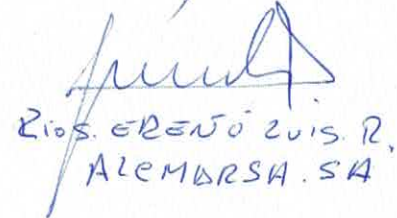 Rios. EREÑO LUIS. R.
ALEMARSA. SA